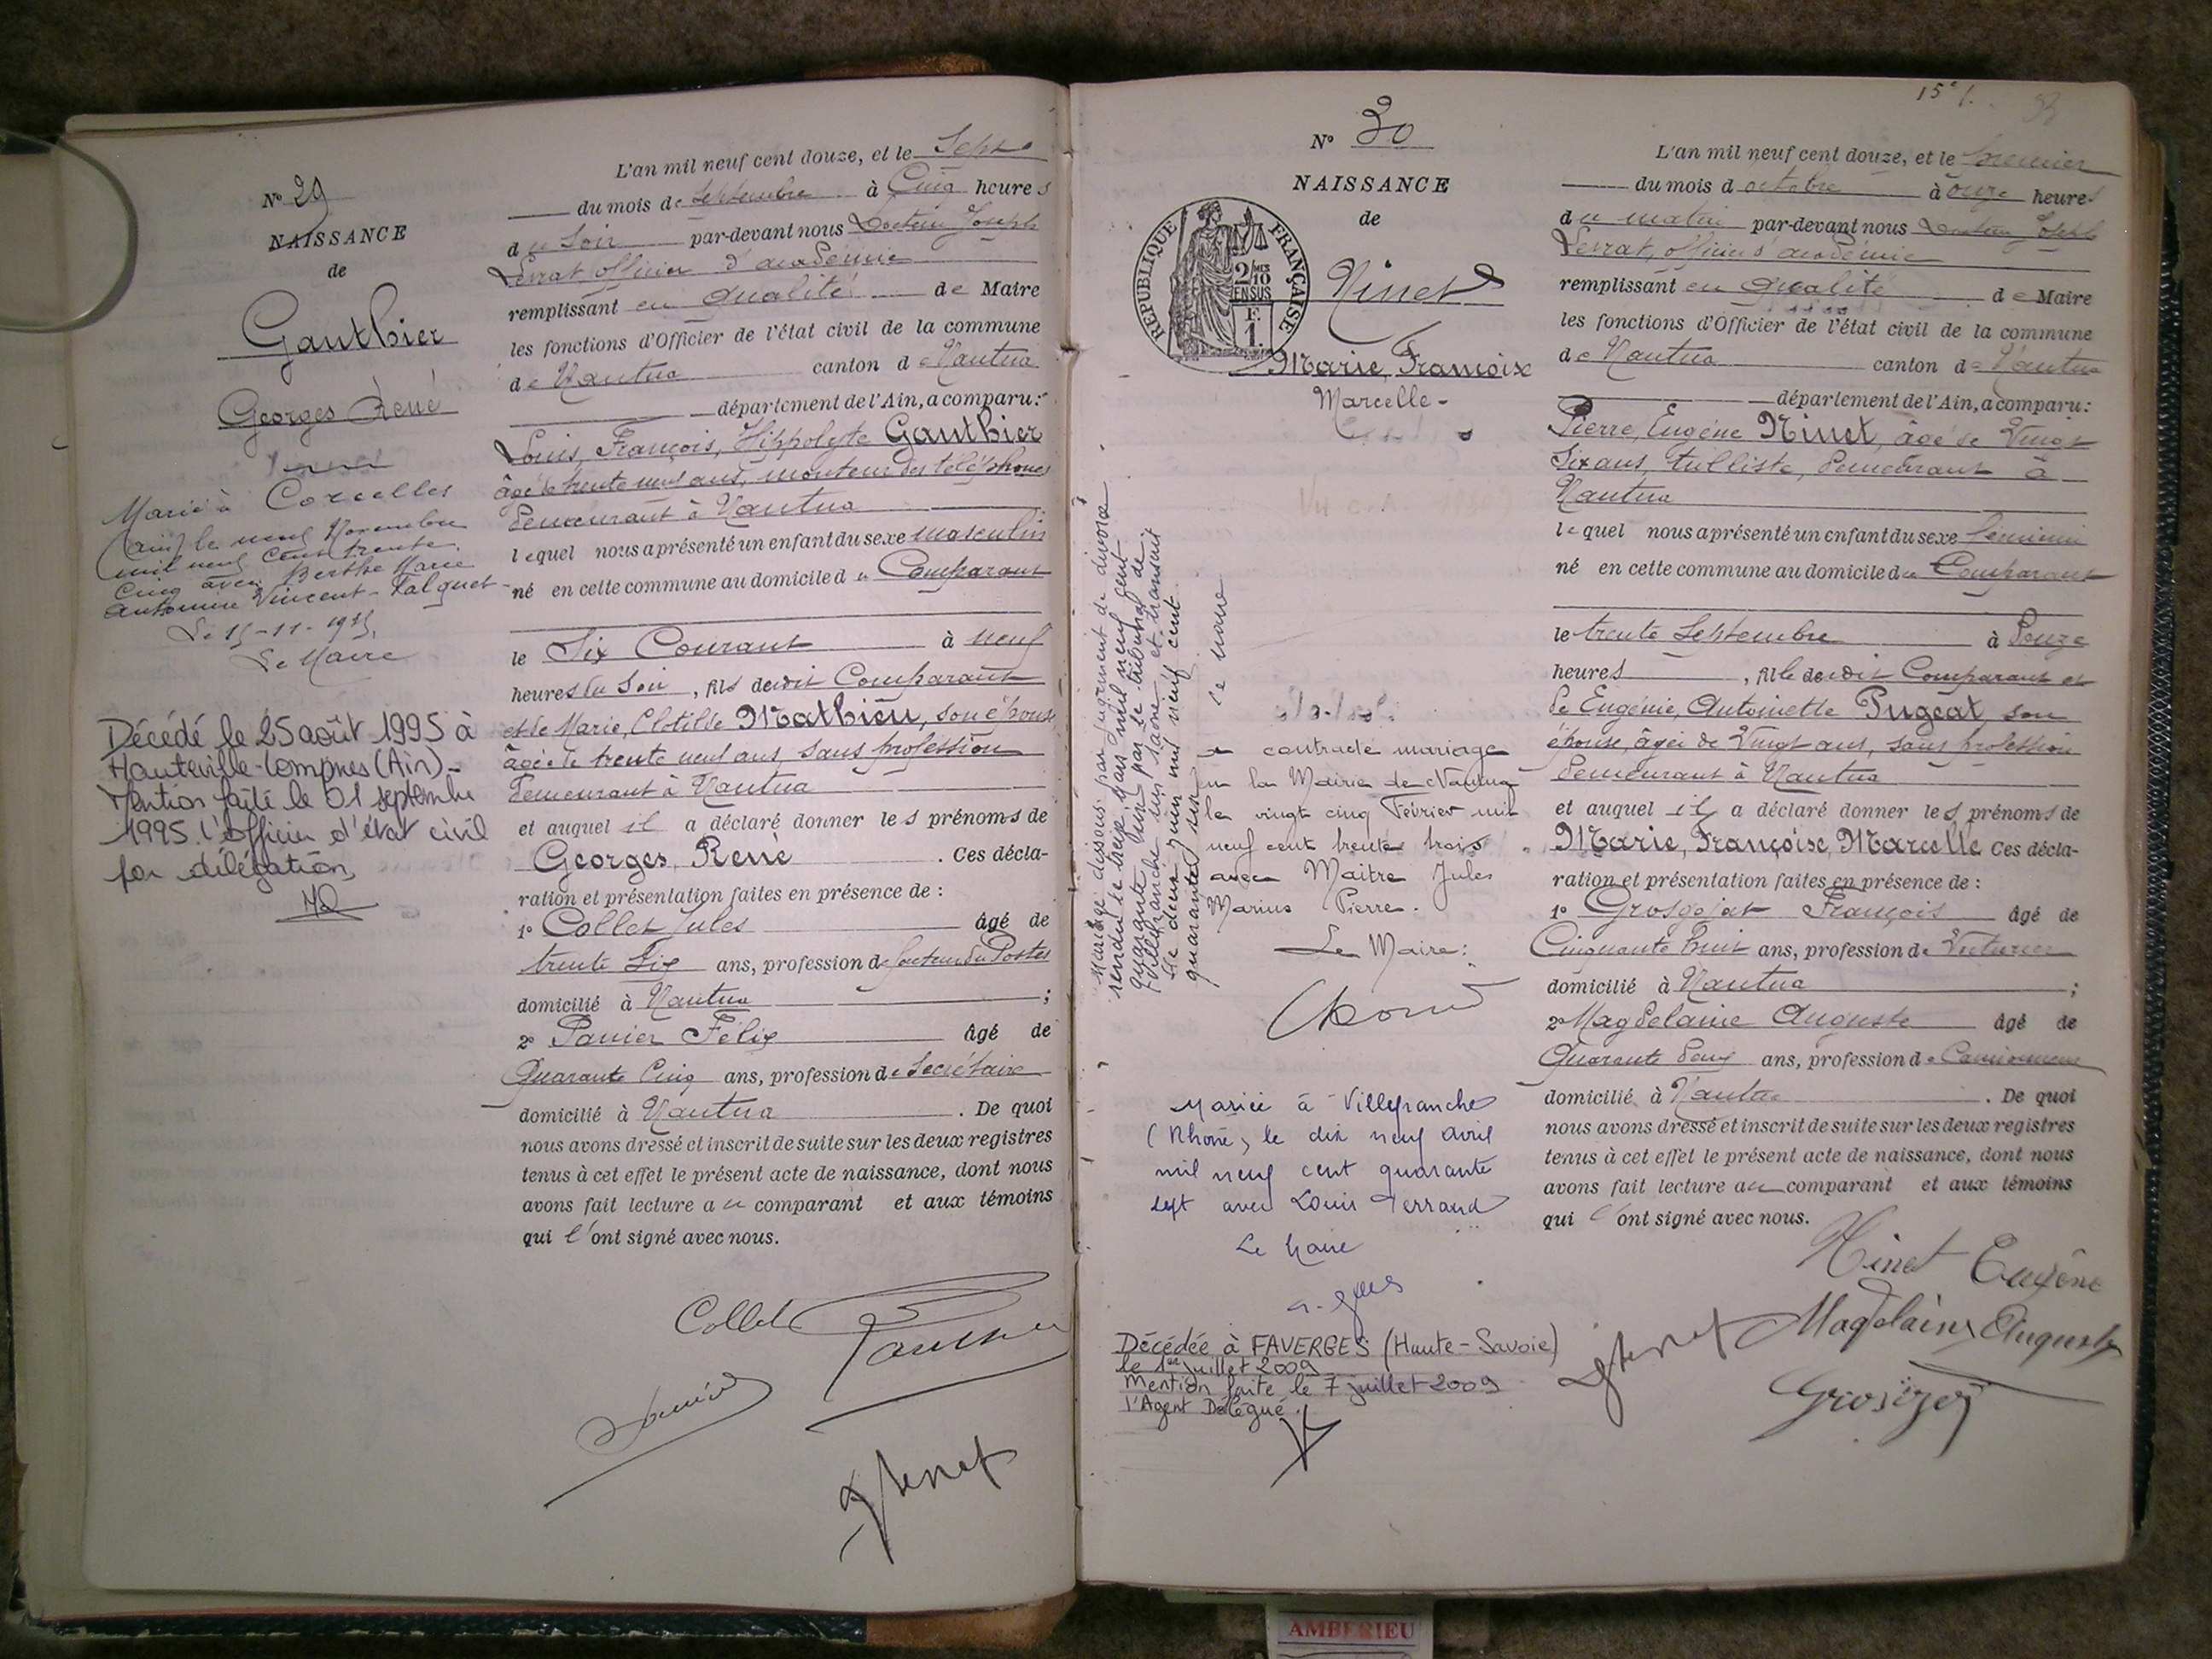 N° 29
NAISSANCE
de
Gauthier
Georges René
Marié à Corcelles
(Ain) le neuf Novembre
mil neuf cent trente
cinq avec Berthe Marie
Antonine Vincent-Falquet
Le 15-11-1935
Le Maire
Décédé le 25 août 1995 à
Hauteville-Lompnes (Ain)_
Mention faite le 01 septembre
1995. L'officier d'état civil
par délégation,
L'an mil neuf cent douze, et le Sept
du mois de Septembre à Cinq heures
du Soir par-devant nous Docteur Joseph
Levrat, officier d'académie
remplissant en qualité de Maire
les fonctions d'Officier de l'état civil de la commune
de Nantua canton de Nantua
département de l'Ain, a comparu:
Louis, François, Hippolyte Gauthier
âgé de trente neuf ans, monteur des téléphones
demeurant à Nantua
lequel nous a présenté un enfant du sexe masculin
né en cette commune au domicile du Comparant
le Six Courant à neuf
heures du Soir, fils dudit Comparant
et de Marie, Clotilde Mathieu, son épouse
âgée de trente neuf ans, sans profession
demeurant à Nantua
et auquel il a déclaré donner les prénoms de
Georges, René. Ces décla-
ration et présentation faites en présence de :
1° Collet Jules âgé de
trente six ans, profession de facteur des Postes
domicilié à Nantua ;
2° Panier Félix âgé de
Quarante Cinq ans, profession de Secrétaire
domicilié à Nantua. De quoi
nous avons dressé et inscrit de suite sur les deux registres
tenus à cet effet le présent acte de naissance, dont nous
avons fait lecture au comparant et aux témoins
qui l'ont signé avec nous.
Collet Gauthier
Panier
J Levrat
15e f.
N° 30
NAISSANCE
de
RÉPUBLIQUE FRANÇAISE
2/10 EN SUS
F. 1.
Ninet
Marie, Françoise
Marcelle-
Mariage dissous par jugement de divorce
rendu le treize mars mil neuf cent
quarante cinq par le tribunal de
Villefranche sur Saône et transcrit
le deux juin mil neuf cent
quarante cinq
Le Maire
a contracté mariage
en la Mairie de Nantua
le vingt cinq Février mil
neuf cent trente trois
avec Maitre Jules
Marius Pierre.
Le Maire:
Mariée à Villefranche
(Rhône) le dix neuf avril
mil neuf cent quarante
sept avec Louis Perraud
Le Maire
Décédée à FAVERGES (Haute-Savoie)
le 1er juillet 2009
Mention faite le 7 juillet 2009
l'Agent Délégué.
L'an mil neuf cent douze, et le premier
du mois d octobre à onze heures
du matin par-devant nous Docteur Joseph
Levrat, officier d'académie
remplissant en qualité de Maire
les fonctions d'Officier de l'état civil de la commune
de Nantua canton de Nantua
département de l'Ain, a comparu:
Pierre, Eugène Ninet, âgé de Vingt
Six ans, tulliste, demeurant à
Nantua
lequel nous a présenté un enfant du sexe féminin
né en cette commune au domicile du Comparant
le trente Septembre à Douze
heures, fille dudit Comparant et
de Eugénie, Antoinette Pugeat, son
épouse, âgée de Vingt ans, sans profession
demeurant à Nantua
et auquel il a déclaré donner les prénoms de
Marie, Françoise, Marcelle Ces décla-
ration et présentation faites en présence de :
1° Grosgojat François âgé de
Cinquante huit ans, profession de Voiturier
domicilié à Nantua ;
2° Magdelaine Auguste âgé de
Quarante deux ans, profession de Camionneur
domicilié à Nantua. De quoi
nous avons dressé et inscrit de suite sur les deux registres
tenus à cet effet le présent acte de naissance, dont nous
avons fait lecture au comparant et aux témoins
qui l'ont signé avec nous.
Ninet Eugène
J Levrat Magdelaine Auguste
AMBERIEU